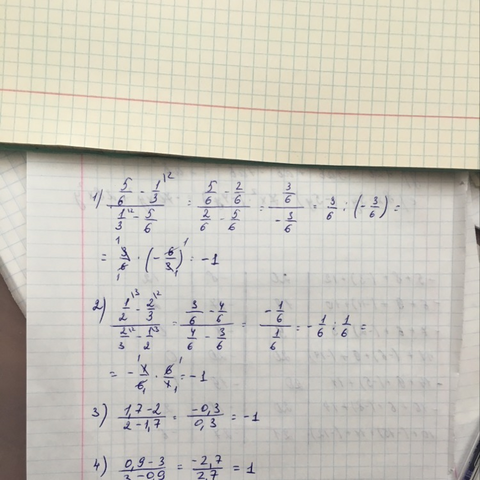 1) (5/6 - 1/3\2) / (1/3\2 - 5/6) = (5/6 - 2/6) / (2/6 - 5/6) = (3/6) / (-3/6) = 3/6 : (-3/6) =
= 3/6 · (-6/3) = -1
2) (1/2\3 - 2/3\2) / (2/3\2 - 1/2\3) = (3/6 - 4/6) / (4/6 - 3/6) = (-1/6) / (1/6) = -1/6 : 1/6 =
= -1/6 · 6/1 = -1
3) (1,7-2) / (2-1,7) = -0,3 / 0,3 = -1
4) (0,9-3) / (3-0,9) = -2,7 / 2,7 = 1